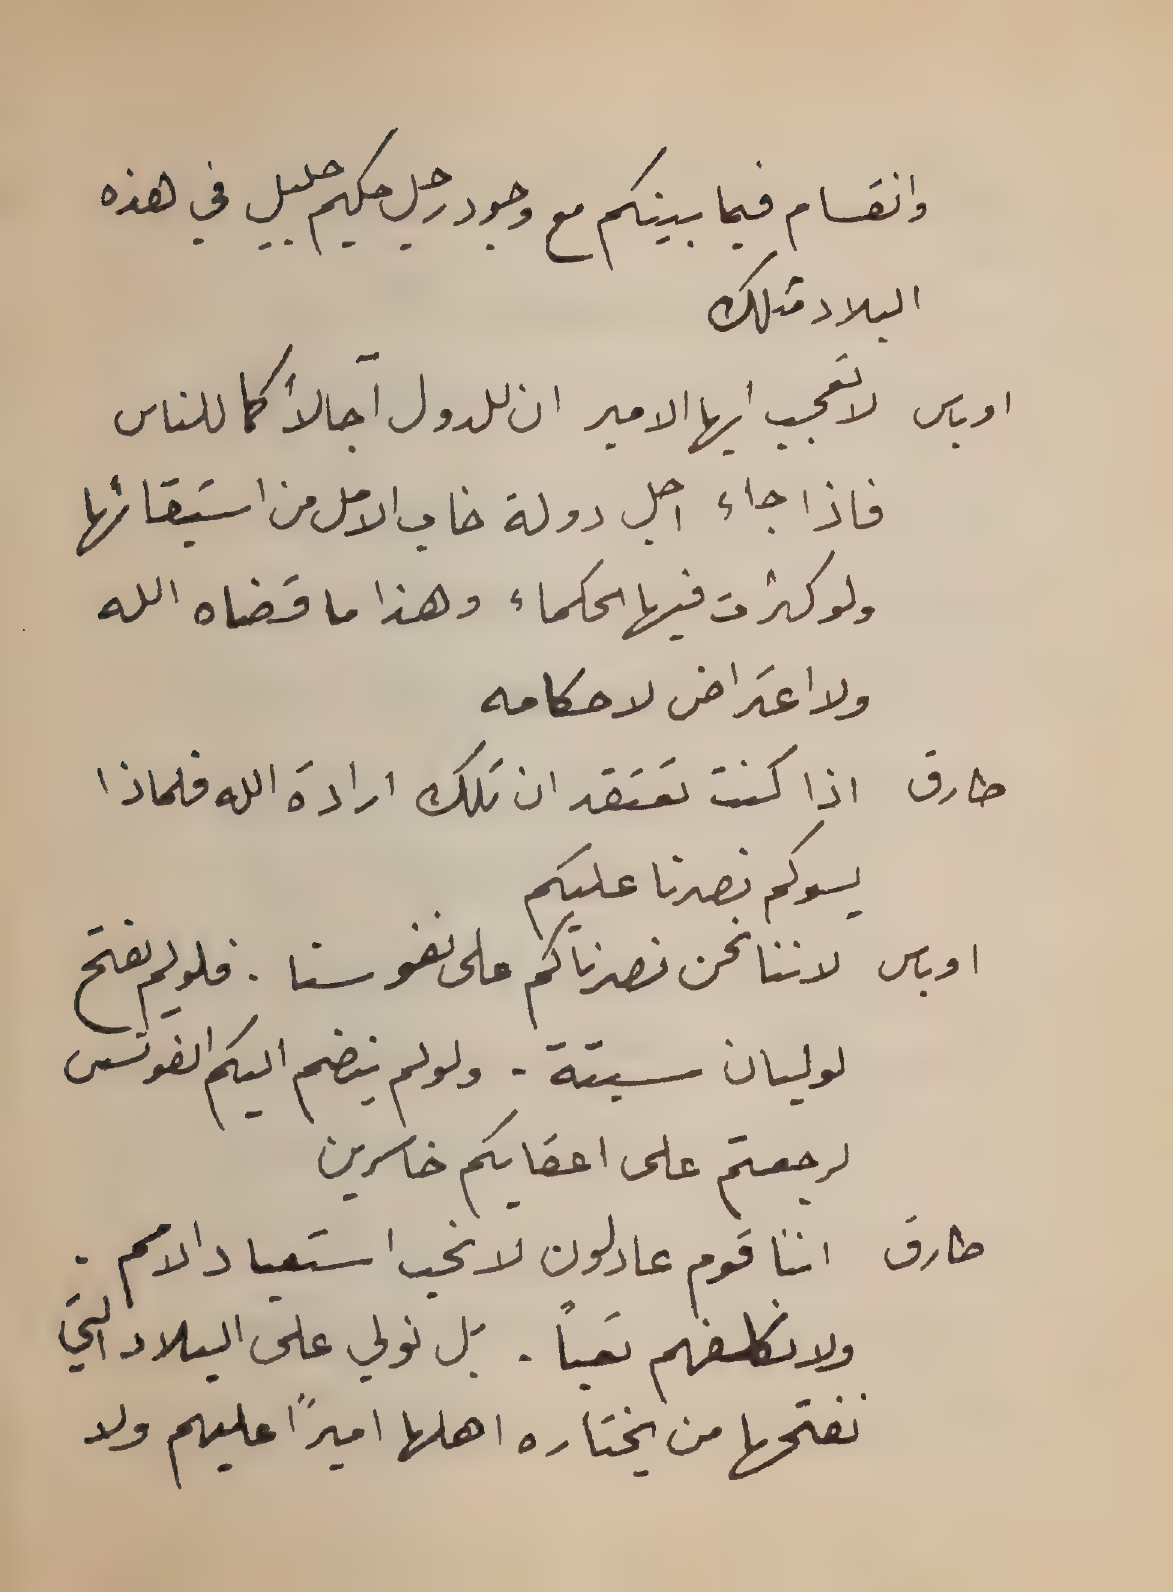 وانقسام فيما بينكم مع وجود رجل حكيم جليل في هذه
البلاد مثلك
اوباس لا تعجب أيها الامير ان للدول آجالاً كما للناس
فاذا جاء اجل دولة خاب الامل من استبقائها
ولو كثرت فيها الحكماء وهذا ما قضاه الله
ولا اعتراض لاحكامه
طارق اذا كنت تعتقد ان تلك ارادة الله فلماذا
يسوكم نصرنا عليكم
اوباس لاننا نحن نصرناكم على نفوسنا . فلو لم يفتح
لوليان سبتة - ولو لم ينضم اليكم الفونس
لرجعتم على اعقابكم خاسرين
طارق اننا قوم عادلون لا نحب استعباد الامم .
ولا نكلفهم تعباً . بل نولي على البلاد التي
نفتحها من يختاره اهلها اميرًا عليهم ولا